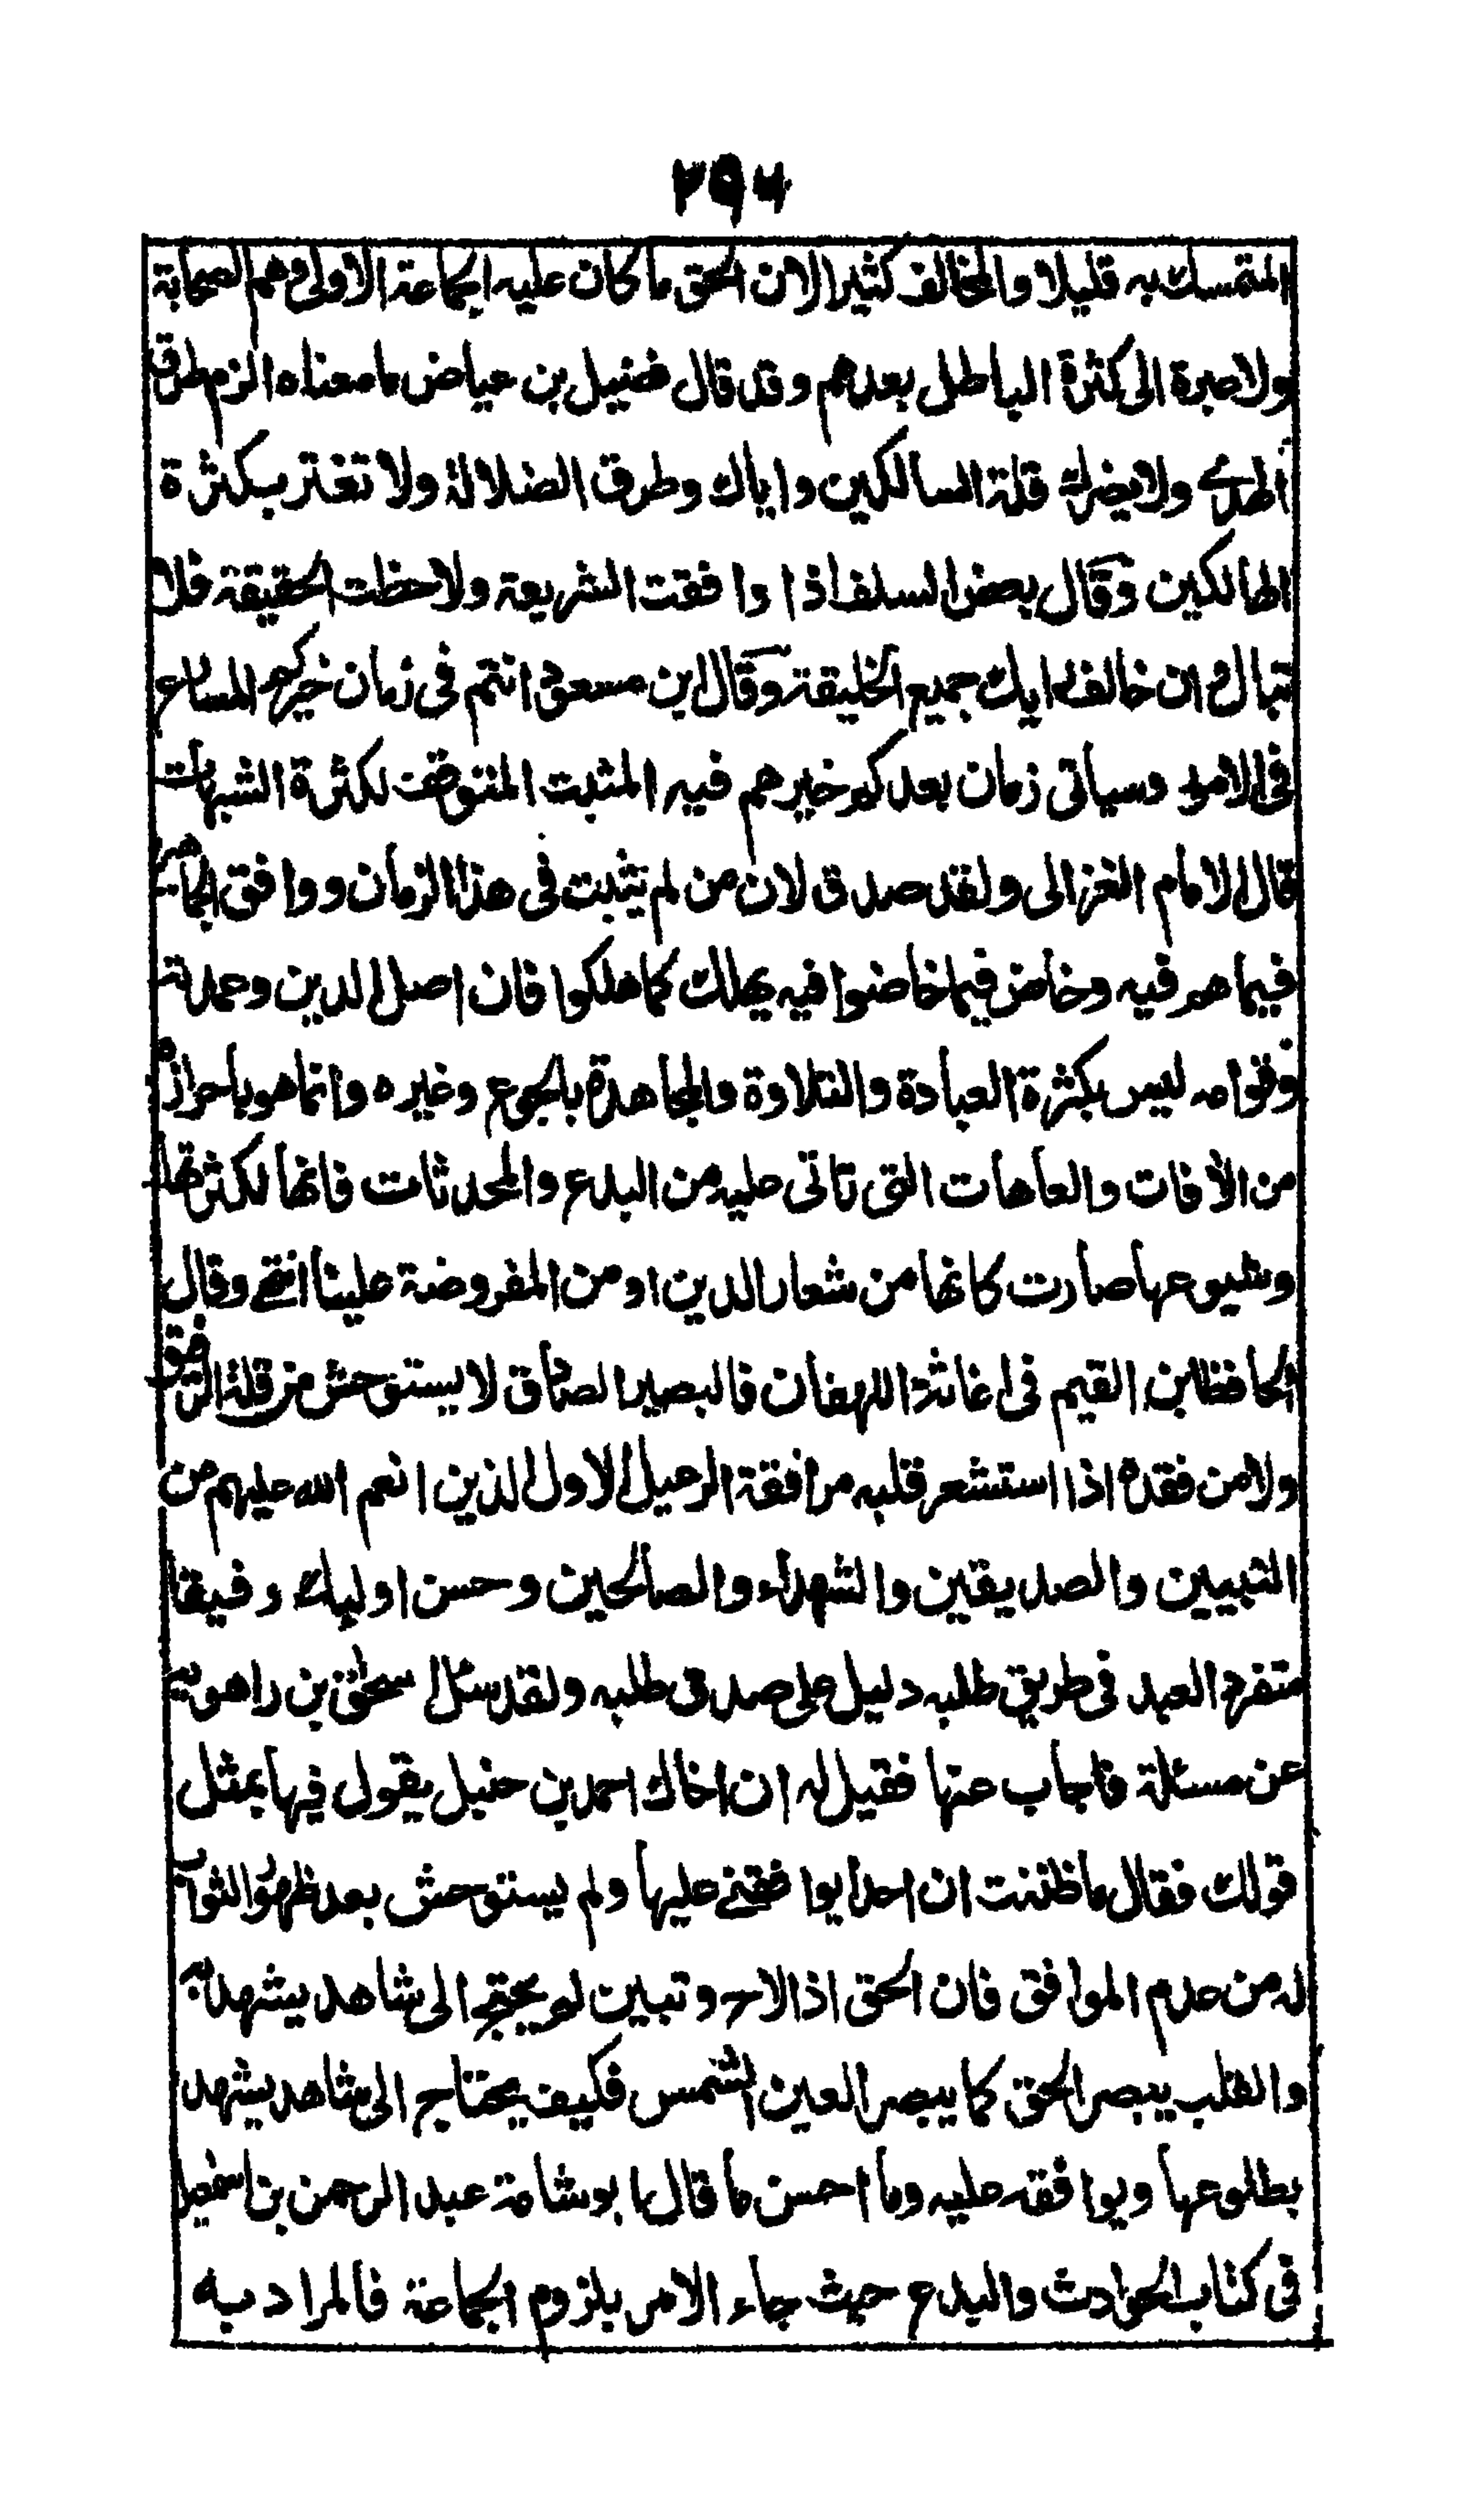 ٢٩٧
المتمسك به قليلا والمخالف كثيرا لان الحق ما كان عليه الجماعة الاولى وهم الصحابة
ولا عبرة الى كثرة الباطل بعدهم وقد قال فضيل بن عياض ما معناه الزم طرق
الهدى ولا يضرك قلة السالكين واياك وطرق الضلالة ولا تغتر بكثرة
الهالكين وقال بعض السلف اذا وافقت الشريعة ولاحظت الحقيقة فلا
تبال وان خالف رايك جميع الخليقة وقال ابن مسعود انتم فى زمان خيركم المسارع
فى الامور وسياتى زمان بعدكم خيرهم فيه المثبت المتوقف لكثرة الشبهات
قال الامام الغزالى ولقد صدق لان من لم يثبت فى هذا الزمان ووافق الجماهير
فيما هم فيه وخاض فيما خاضوا فيه يهلك كما هلكوا فان اصل الدين وعمدته
وقوامه ليس بكثرة العبادة والتلاوة والمجاهدة بالجوع وغيره وانما هو باحرازه
من الآفات والعاهات التى تاتى عليه من البدع والمحدثات فانها لكثرتها
وشيوعها صارت كانها من شعار الدين او من المفروضة علينا انتهى وقال
الحافظ ابن القيم فى اغاثة اللهفان فالبصير الصادق لا يستوحش من قلة الرفيق
ولا من فقده اذا استشعر قلبه مرافقة الرعيل الاول الذين انعم الله عليهم من
النبيين والصديقين والشهداء والصالحين وحسن اوليك رفيقا
متفرد العبد فى طريق طلبه دليل على صدق طلبه ولقد سئل اسحق بن راهويه
عن مسئلة فاجاب عنها فقيل له ان اخاك احمد بن حنبل يقول فيها بمثل
قولك فقال ما ظننت ان احدا يوافقنى عليها ولم يستوحش بعد ظهور الثواب
له من عدم الموافق فان الحق اذا لاح وتبين لم يحتج الى شاهد يشهد به
والقلب يبصر الحق كما يبصر العين الشمس فكيف يحتاج الى شاهد يشهد
بطلوعها ويوافقه عليه وما احسن ما قال ابو شامة عبد الرحمن بن اسمعيل
فى كتاب الحوادث والبدع حيث جاء الامر بلزوم الجماعة فالمراد به